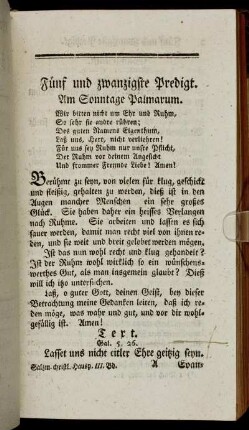 Fünf und zwanzigste Predigt.
Am Sonntage Palmarum.
Wir bitten nicht um Ehr und Ruhm,
So sehr sie andre rühren;
Des guten Namens Eigenthum,
Laß uns, Herr, nicht verliehren!
Für uns sey Ruhm nur unsre Pflicht,
Der Ruhm vor deinem Angesicht
Und frommer Freunde Liebe! Amen!
Berühmt zu seyn, von vielen für klug, geschickt
und fleißig, gehalten zu werden, dieß ist in den
Augen mancher Menschen ein sehr großes
Glück. Sie haben daher ein heisses Verlangen
nach Ruhme. Sie arbeiten und lassen es sich
sauer werden, damit man recht viel von ihnen re-
den, und sie weit und breit gelobet werden mögen.
Ist das nun wohl recht und klug gehandelt?
Ist der Ruhm wohl wirklich so ein wünschens-
werthes Gut, als man insgemein glaubt? Dieß
will ich itzo untersuchen.
Laß, o guter Gott, deinen Geist, bey dieser
Betrachtung meine Gedanken leiten, daß ich re-
den möge, was wahr und gut, und vor dir wohl-
gefällig ist. Amen!
Text.
Gal. 5, 26.
Lasset uns nicht eitler Ehre geitzig seyn.
Salzm. christl. Hausp. III. Bd. A Evan-